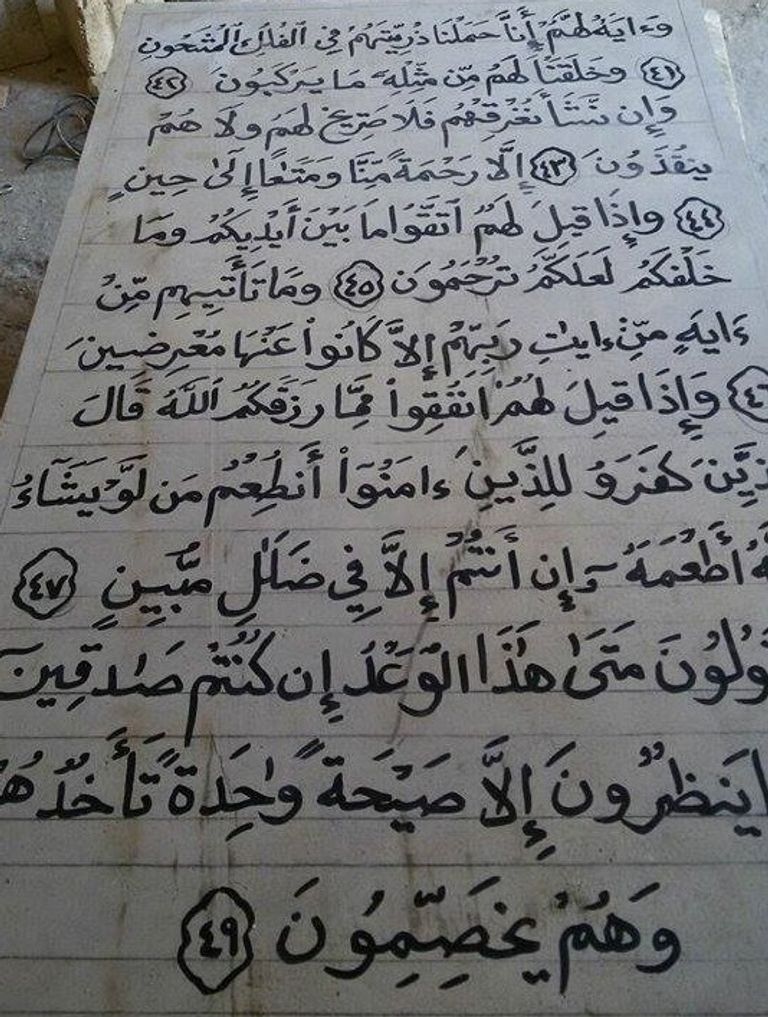 وَءَايَةٌ لَّهُمْ أَنَّا حَمَلْنَا ذُرِّيَّتَهُمْ فِي الْفُلْكِ الْمَشْحُونِ
٤١ وَخَلَقْنَا لَهُم مِّن مِّثْلِهِ مَا يَرْكَبُونَ ٤٢
وَإِن نَّشَأْ نُغْرِقْهُمْ فَلَا صَرِيخَ لَهُمْ وَلَا هُمْ
يُنقَذُونَ ٤٣ إِلَّا رَحْمَةً مِّنَّا وَمَتَٰعًا إِلَىٰ حِينٍ
٤٤ وَإِذَا قِيلَ لَهُمُ اتَّقُوا مَا بَيْنَ أَيْدِيكُمْ وَمَا
خَلْفَكُمْ لَعَلَّكُمْ تُرْحَمُونَ ٤٥ وَمَا تَأْتِيهِم مِّنْ
ءَايَةٍ مِّنْ ءَايَٰتِ رَبِّهِمْ إِلَّا كَانُواْ عَنْهَا مُعْرِضِينَ
٤٦ وَإِذَا قِيلَ لَهُمْ أَنفِقُواْ مِمَّا رَزَقَكُمُ اللَّهُ قَالَ
كَفَرُو لِلَّذِينَ ءَامَنُوٓاْ أَنُطْعِمُ مَن لَّوْ يَشَآءُ
أَطْعَمَهُ إِنْ أَنتُمْ إِلَّا فِي ضَلَٰلٍ مُّبِينٍ ٤٧
مَتَىٰ هَٰذَا الْوَعْدُ إِن كُنتُمْ صَٰدِقِينَ
يَنظُرُونَ إِلَّا صَيْحَةً وَٰحِدَةً تَأْخُذُهُمْ
وَهُمْ يَخِصِّمُونَ ٤٩